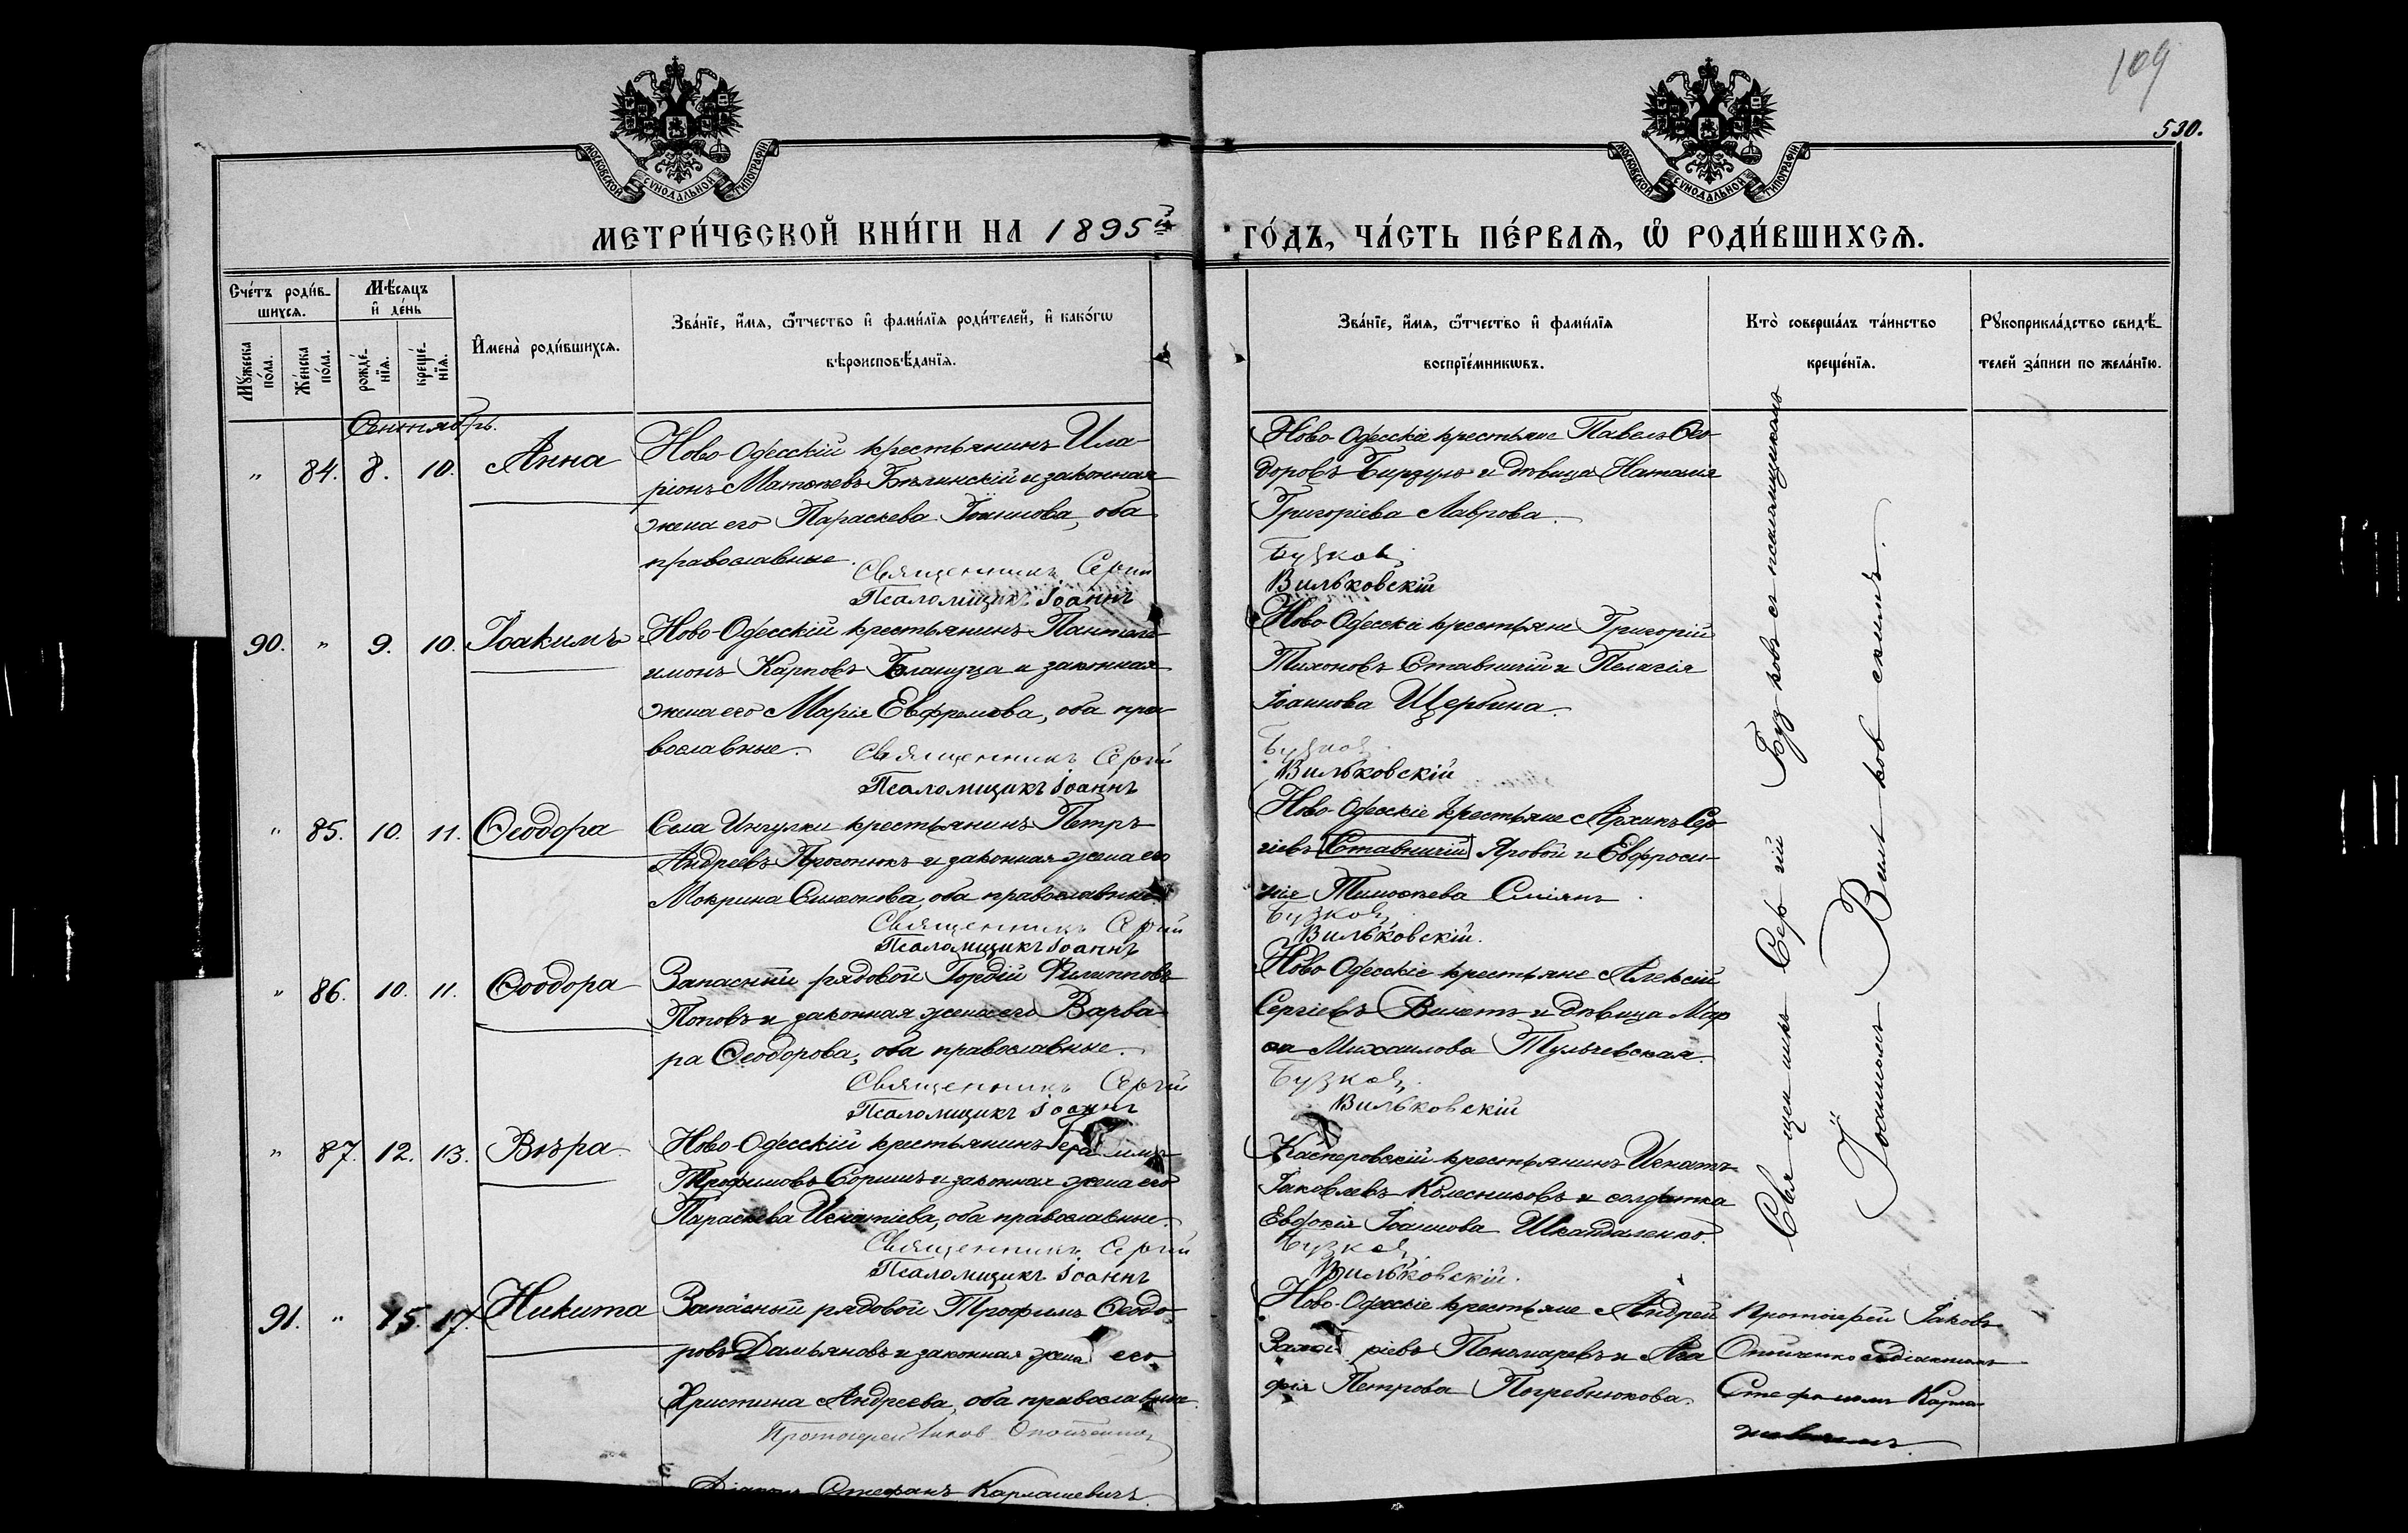 109
530.
МОСКОВСКОЙ СѴНОДАЛЬНОЙ ТИПОГРАФІИ
МОСКОВСКОЙ СѴНОДАЛЬНОЙ ТИПОГРАФІИ
МЕТРИ́ЧЕСКОЙ КНИ́ГИ НА 1895й
ГО́ДЪ, ЧА́СТЬ ПЕ́РВАѦ, Ѡ РОДИ́ВШИХСѦ.
Сче́тъ роди́в-
шихсѧ.
Мꙋ́жеска по́ла.
Же́нска по́ла.
Мѣ́сѧцъ и҆ де́нь
рожде́-нїѧ.
креще́-нїѧ.
И҆мена̀ роди́вшихсѧ.
Зва́нїе, и҆́мѧ, ѻ҆́тчество и҆ фами́лїѧ роди́телей, и҆ како́гѡ
вѣроисповѣ́данїѧ.
Зва́нїе, и҆́мѧ, ѻ҆́тчество и҆ фами́лїѧ
воспрїе́мникѡвъ.
Кто̀ соверша́лъ та́инство
креще́нїѧ.
Рꙋкоприкла́дство свидѣ́-
телей за́писи по жела́нїю.
Сентябрь.
" 84. 8. 10. Анна
Ново-Одесскій крестьянинъ Ила-
ріонъ Матѳеевъ Бѣлинскій и законная
жена его Параскева Іоаннова, оба
православные.
Священникъ Сергій
Псаломщикъ Іоаннъ
Ново-Одесскіе крестьяне Павелъ Ѳео-
доровъ Бирзулъ и дѣвица Наталія
Григоріева Лаврова.
Бузков
Вильковскій
90. " 9. 10. Іоакимъ
Ново-Одесскій крестьянинъ Пантеле-
имонъ Карповъ Балануца и законная
жена его Марія Евфремова, оба пра-
вославные.
Священникъ Сергій
Псаломщикъ Іоаннъ
Ново-Одесскіе крестьяне Григорій
Тихоновъ Ставничій и Пелагія
Іоаннова Щербина.
Бузков
Вильковскій
" 85. 10. 11. Ѳеодора
Села Ингулки крестьянинъ Петръ
Андреевъ Прогонюкъ и законная жена его
Мокрина Симонова, оба православные.
Священникъ Сергій
Псаломщикъ Іоаннъ
Ново-Одесскіе крестьяне Архипъ Сер-
гіевъ Ставничій Яровой и Евфроси-
нія Тимоѳеева Сміянъ.
Бузков
Вильковскій.
" 86. 10. 11. Ѳеодора
Запасный рядовой Гордій Филипповъ
Поповъ и законная жена его Варва-
ра Ѳеодорова, оба православные.
Священникъ Сергій
Псаломщикъ Іоаннъ
Ново-Одесскіе крестьяне Алексій
Сергіевъ и дѣвица Мар
ѳа Михаилова Тульчевская.
Бузков
Вильковскій
" 87. 12. 13. Вѣра
Ново-Одесскій крестьянинъ Герасимъ
Трофимовъ и законная жена его
Параскева Игнатіева, оба православные.
Священникъ Сергій
Псаломщикъ Іоаннъ
Касперовскій крестьянинъ Игнатъ
Іаковлевъ Колесниковъ и солдатка
Евдокія Іоаннова Шкандаленко.
Бузков
Вильковскій.
Священникъ Сергій Бузковъ съ псаломщикомъ
Іоанномъ Вильковскимъ.
91. " 15. 17. Никита
Запасный рядовой Трофимъ Ѳеодо-
ровъ Дамьяновъ и законная жена его
Христина Андреева, оба православные.
Протоіерей Іаков
Діаконъ Стефанъ Карлашевичъ.
Ново-Одесскіе крестьяне Андрей
Захаріевъ Пономаревъ и Ага
фія Петрова Погребнюкова.
Протоіерей Іаковъ
съ діакономъ
Стефаномъ Карла-
шевичемъ.